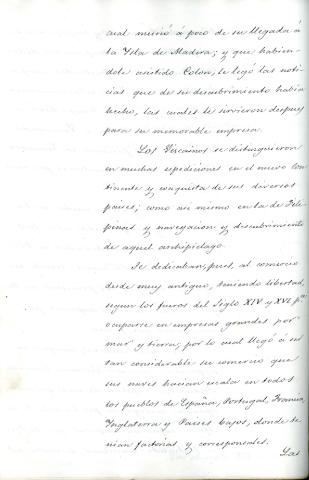 cual murió á poco de su llegada á
la Ysla de Madera; y que habien-
dole asistido Colon, le legó las noti-
cias que de su descubrimiento habia
hecho, las cuales le sirvieron despues
para su memorable empresa.
Los Vizcainos se distinguieron
en muchas espediciones en el nuevo con
tinente y conquista de sus diversos
paises; como asi mismo en la de Fili-
pinas y navegacion y descubrimiento
de aquel archipielago.
Se dedicaban, pues, al comercio
desde muy antiguo, teniendo libertad,
segun los fueros del Siglo XIV y XVI, pª
ocuparse en empresas grandes por
mar y tierra; por lo cual llegó á ser
tan considerable su comercio que
sus naves hacian escala en todos
los pueblos de España, Portugal, Francia,
Ynglaterra y Paises bajos, donde te-
nian factorias y corresponsales.
Las